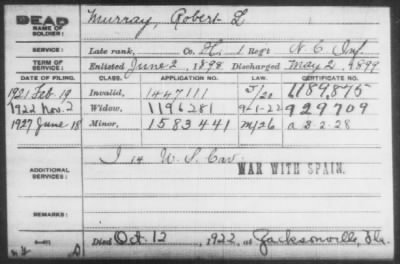 DEAD Murray, Robert L
NAME OF SOLDIER:
SERVICE: Late rank, Co. H, 1 Regt N C Inf.
TERM OF SERVICE: Enlisted June 2, 1898 Discharged May 2, 1899
DATE OF FILING. CLASS. APPLICATION NO. LAW. CERTIFICATE NO.
1921 Feb 19 Invalid, 1447111 5/20 1184875
1922 Nov. 2 Widow, 1196281 9-1-22 929709
1927 June 18 Minor, 1583441 M/26 a 3-2-28
ADDITIONAL SERVICES: I 14 U.S. Cav.
WAR WITH SPAIN.
REMARKS:
Died Oct. 12, 1922, at Jacksonville, Fla.